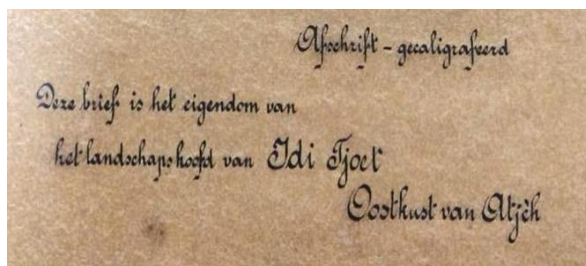 Afschrift - gecaligrafeerd
Deze brief is het eigendom van
het landschapshoofd van Idi Tjoet
Oostkust van Atjèh